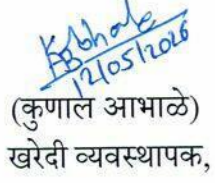 12/05/2026
(कुणाल आभाळे)
खरेदी व्यवस्थापक,